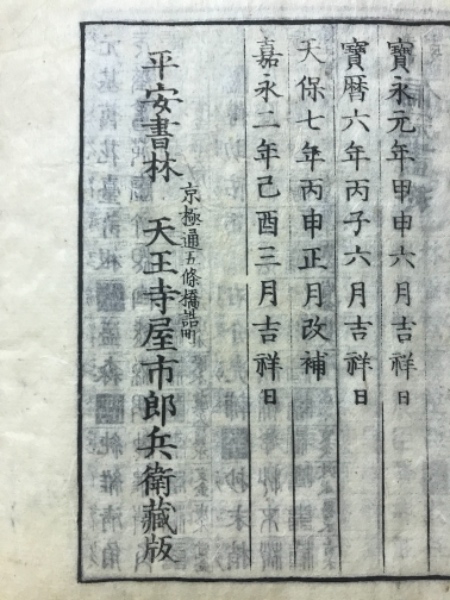 寶永元年甲申六月吉祥日
寶暦六年丙子六月吉祥日
天保七年丙申正月改補
嘉永二年己酉三月吉祥日
京極通五條橋詰町
平安書林 天王寺屋市郎兵衛藏版